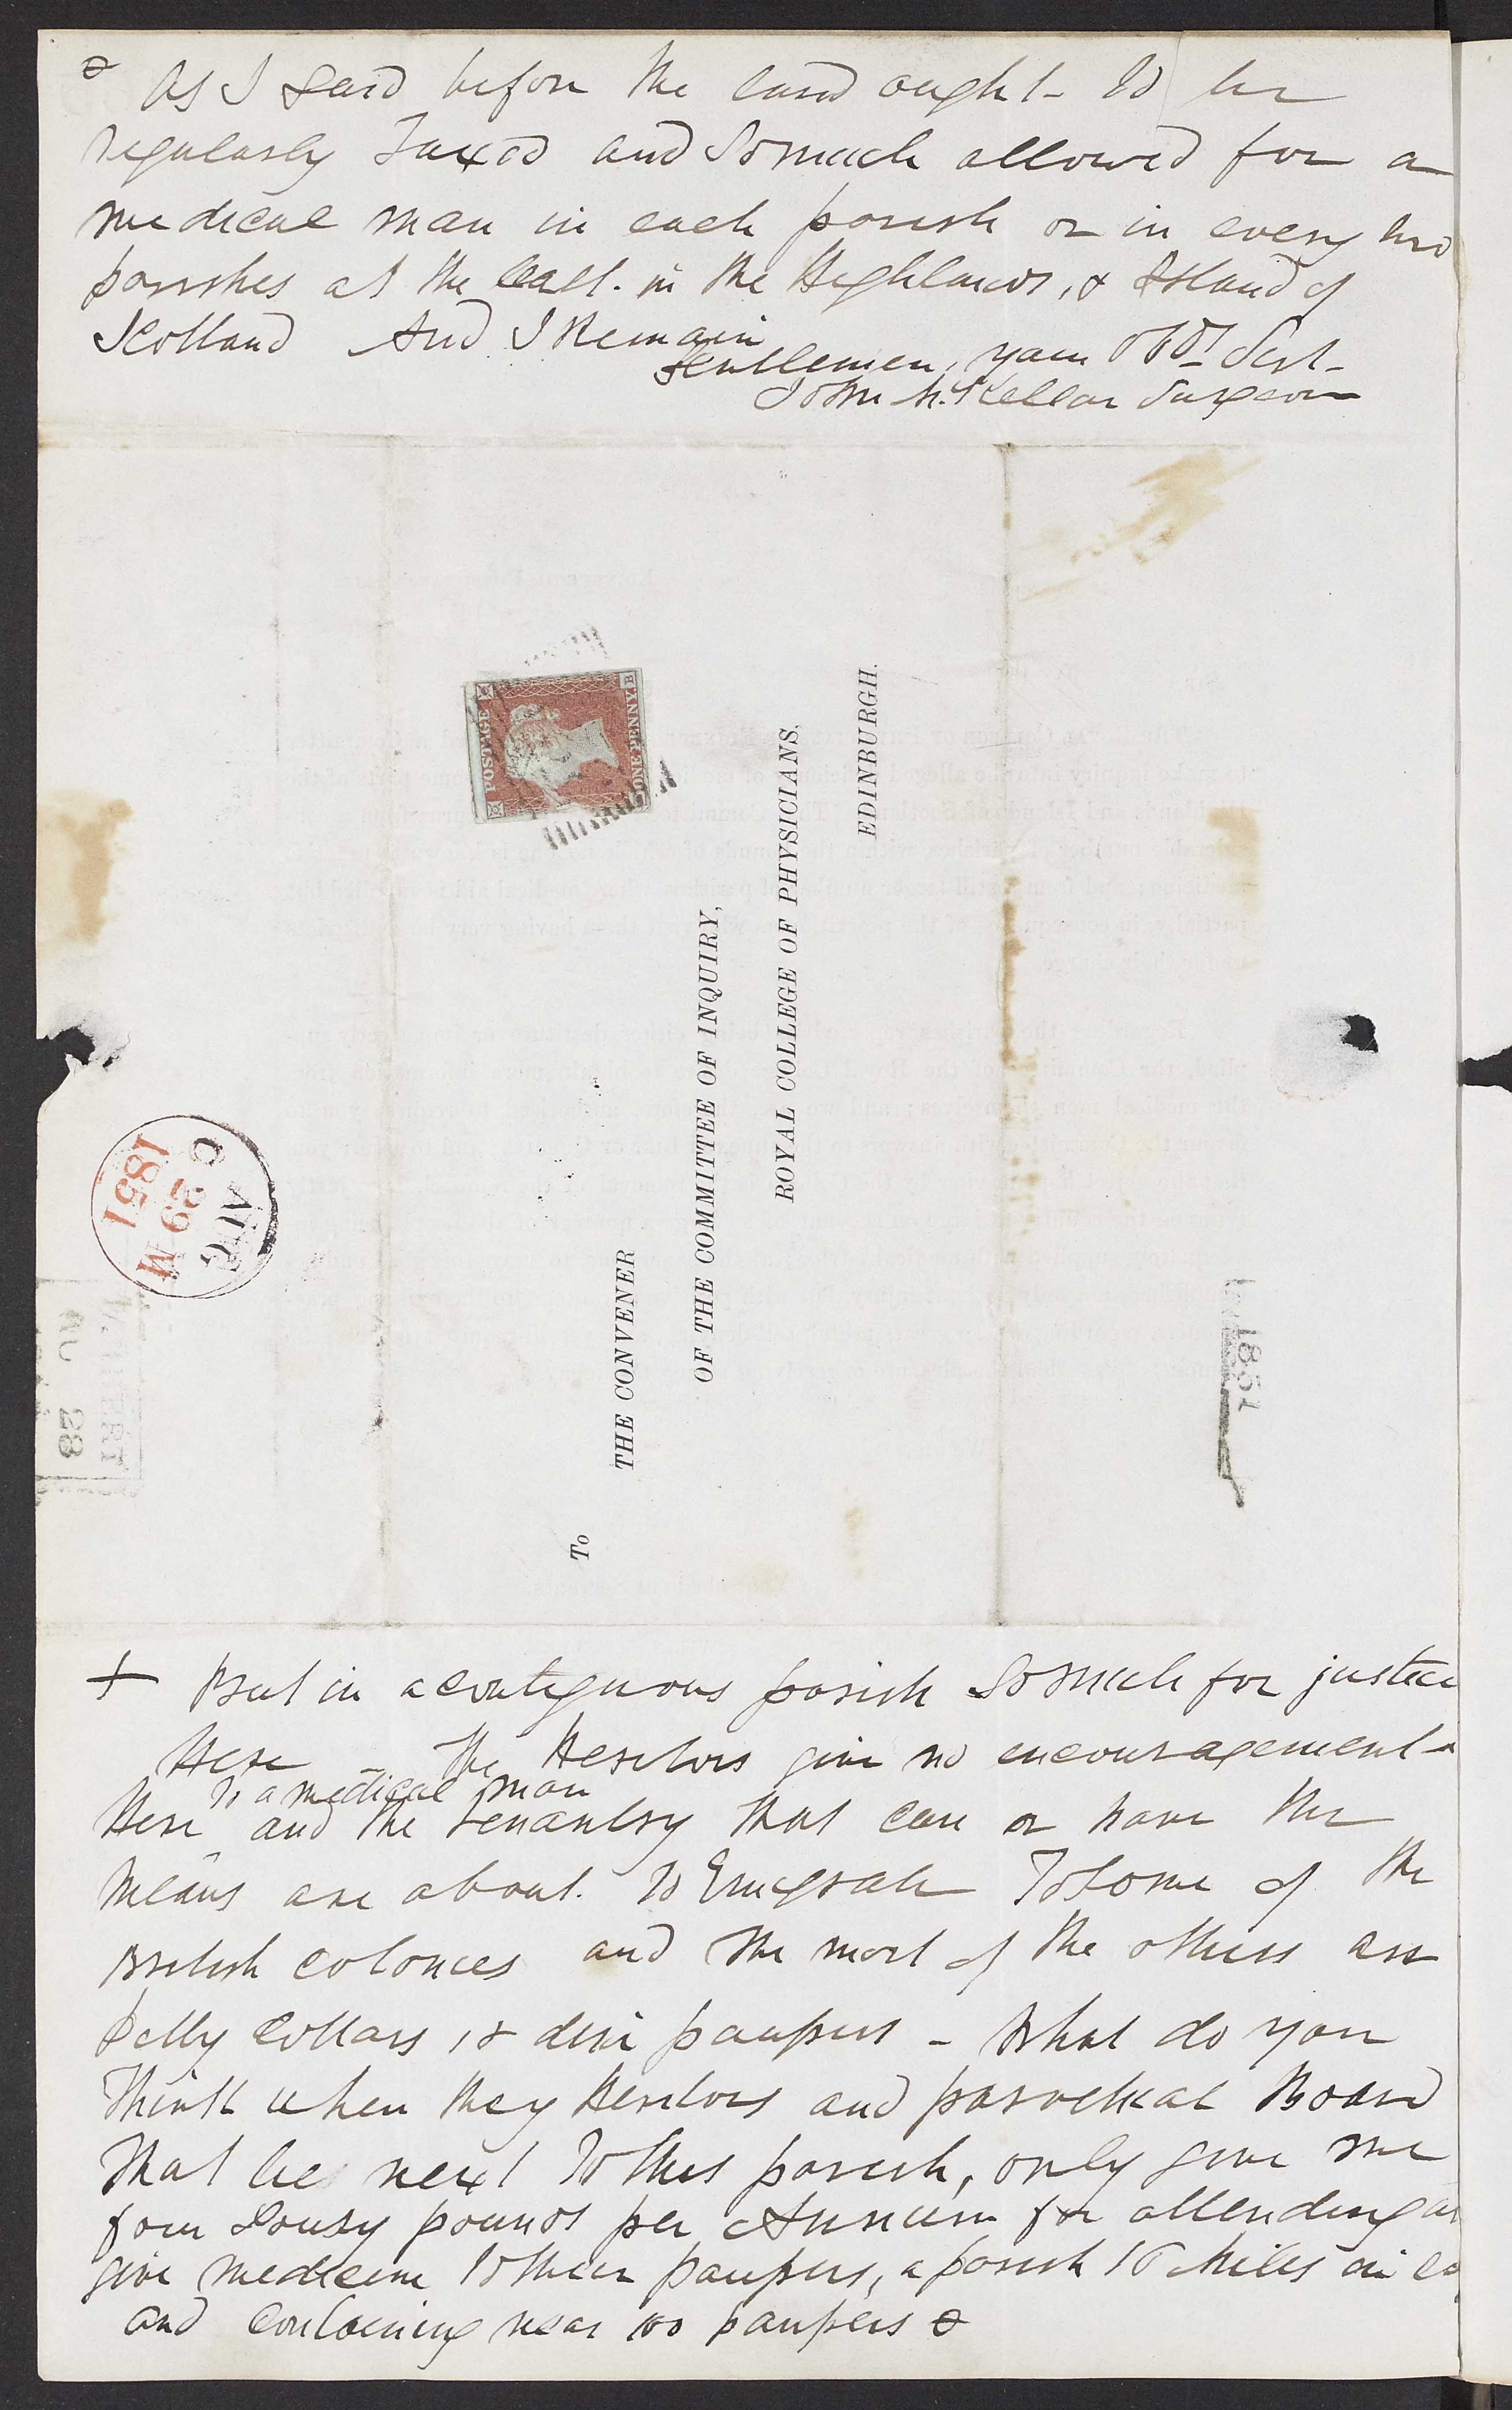 ə As I said before the land ought to be
regularly Taxed and so much allowed for a
medical man in each parish or in every two
parishes at the least. in the Highlands, & Island of
Scotland And I Remain
Gentlemen, your Obdt Sert
John McKellar Surgeon
POSTAGE
ONE PENNY B
To
THE CONVENER
OF THE COMMITTEE OF INQUIRY,
ROYAL COLLEGE OF PHYSICIANS,
EDINBURGH.
C AUG M
29
1851
AU 28
1851
+ But in a contiguous parish So much for justice
Here The Heritors give no encouragement
to a medical man
Here and the tenantry that can or have the
means are about to Emigrate To some of the
British colonies and the most of the others are
petty Cottars, & paupers - What do you
Think when they Heritors and parochial Board
That lie next to this parish, only give me
four Lousy pounds per Annum for attending
give medicine to their paupers, a parish 16 Miles in
and containing near 100 paupers ə